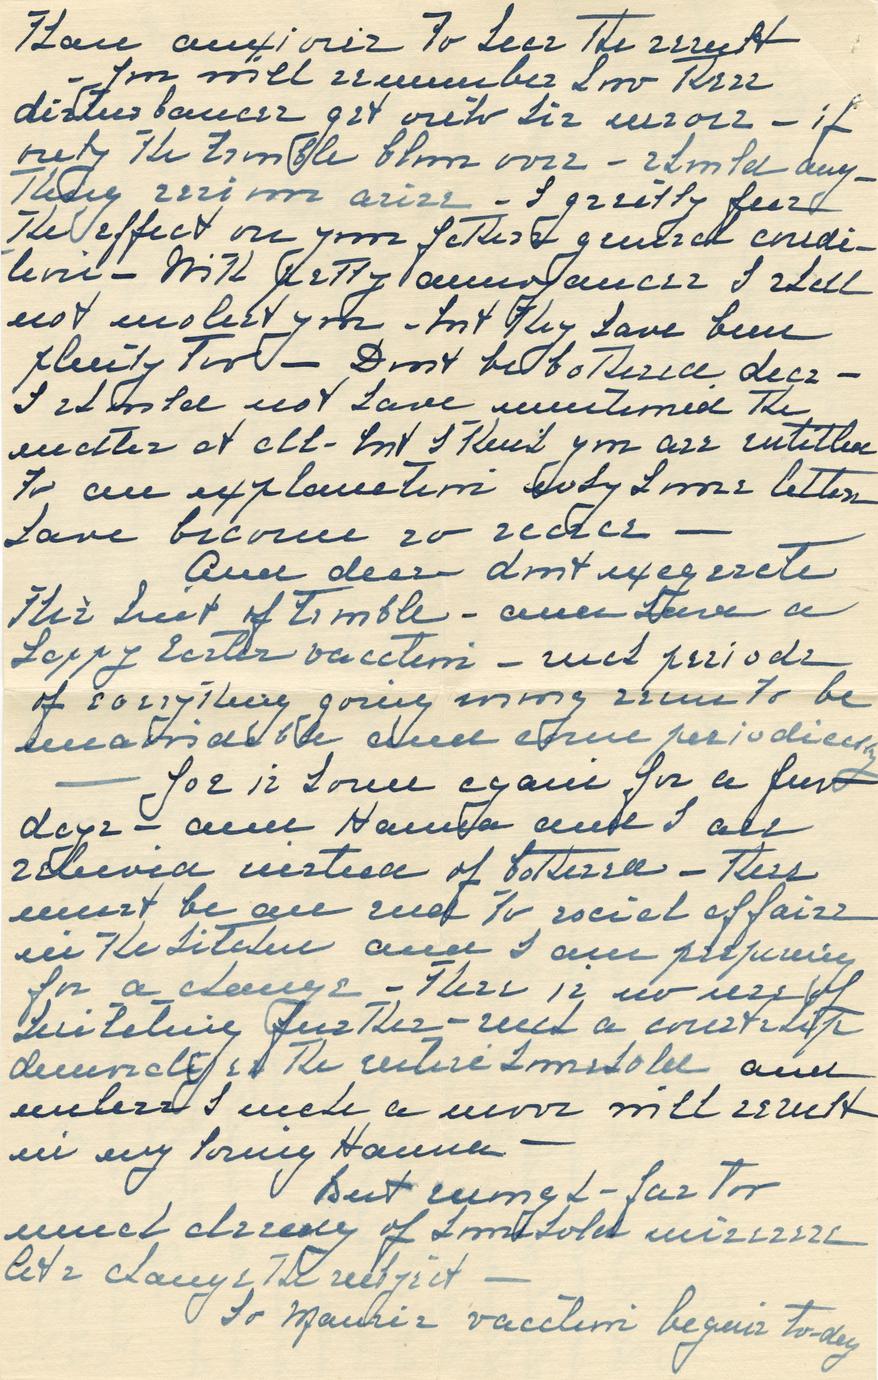 I am anxious to hear the result
- You will remember how these
disturbances get onto his nerves - if
only the trouble blows over - should any-
thing serious arise - I greatly fear
the effect on your fathers general condi-
tion - With petty annoyances I shall
not molest you - but they have been
plenty too - Dont be bothered dear -
I should not have mentioned the
matter at all - but I think you are entitled
to an explanation why home letters
have become so scarce -
And dear dont exagerate
this hint of trouble - and have a
happy Easter vacation - such periods
of everything going wrong seem to be
unavoidable and come periodically
- Joe is home again for a few
days - and Hanna and I are
relieved instead of bothered - there
must be an end to social affairs
in the kitchen and I am preparing
for a change - There is no use of
hesitating further - such a courtship
demoralizes the entire household and
unless I make a move will result
in my losing Hanna -
But enough - far too
much already of household miseries
lets change the subject -
So Mauris vacation begins to-day